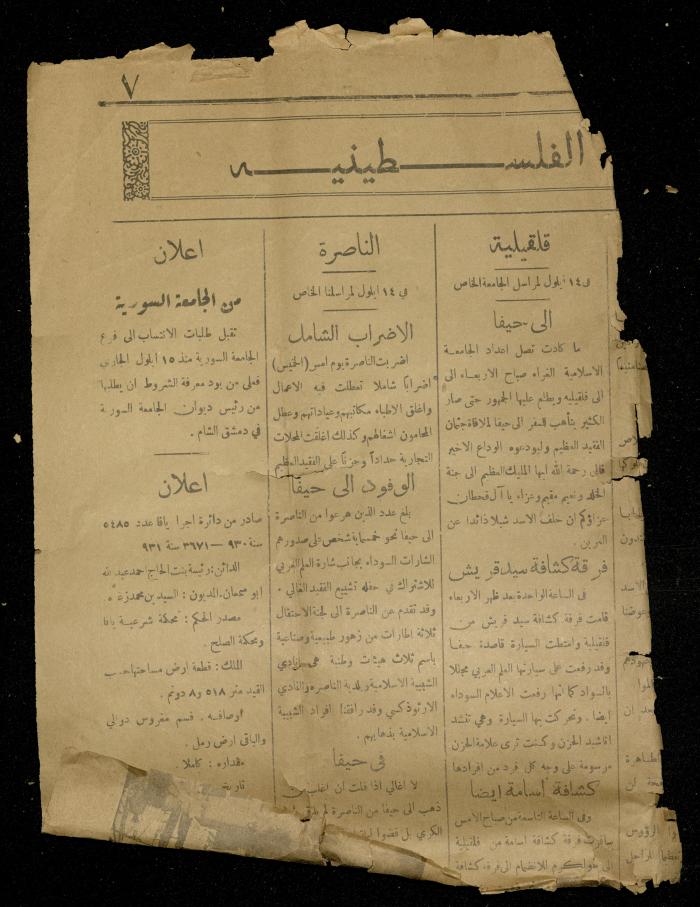 ٧
الفلسطينيه
قلقيلية
في ١٤ ايلول لمراسل الجامعة الخاص
الى حيفا
ما كادت تصل اعداد الجامعة
الاسلامية الغراء صباح الاربعاء الى
الى قلقيليه ويطلع عليها الجمهور حتى صار
الكثير يتأهب للسفر الى حيفا لملاقاة جثمان
الفقيد العظيم وليودعوه الوداع الاخير
فالى رحمة الله ايها المليك العظيم الى جنة
الخلد ونعيم مقيم وعزاء يا آل قحطان
عزاؤكم ان خلف الاسد شبلا ذائدا عن
العرين.
فرقة كشافة سيد قريش
في الساعة الواحدة بعد ظهر الاربعاء
قامت فرقة كشافة سيد قريش من
قلقيلية وامتطت السيارة قاصدة حيفا
وقد رفعت على سيارتها العلم العربي مجللا
بالسواد كما انها رفعت الاعلام السوداء
ايضا. وتحركت بها السيارة وهي تنشد
اناشيد الحزن وكنت ترى علامة الحزن
مرسومة على وجه كل فرد من افرادها
كشافة أسامة ايضا
وفي الساعة التاسعة من صباح الامس
سافرت فرقة كشافة اسامة من قلقيلية
الى طولكرم للانضمام الى فرقة كشافة
الناصرة
في ١٤ ايلول لمراسلنا الخاص
الاضراب الشامل
اضربت الناصرة يوم امس (الخميس)
اضرابا شاملا تعطلت فيه الاعمال
واغلق الاطباء مكاتبهم وعياداتهم وعطل
المحامون اشغالهم وكذلك اغلقت المحلات
التجارية حداداً وحزناً على الفقيد العظيم
الوفود الى حيفا
بلغ عدد الذين هرعوا من الناصرة
الى حيفا نحو خمسماية شخص على صدورهم
الشارات السوداء بجانب شارة العلم العربي
للاشتراك في حفلة تشييع الفقيد الغالي.
وقد تقدم عن الناصرة الى لجنة الاحتفال
ثلاثة اطارات من زهور طبيعية وصناعية
باسم ثلاث هيئات وطنية هي نادي
الشبيبة الاسلامية وبلدية الناصرة والنادي
الارثوذكسي وقد رافقنا افراد الشبيبة
الاسلامية بذهابهم.
في حيفا
لا اغالي اذا قلت ان اغلب من
ذهب الى حيفا من الناصرة لم
الكرى بل قضوا
اعلان
من الجامعة السورية
تقبل طلبات الانتساب الى فرع
الجامعة السورية منذ ١٥ ايلول الجاري
فعلى من يود معرفة الشروط ان يطلبها
من رئيس ديوان الجامعة السورية
في دمشق الشام.
اعلان
صادر من دائرة اجرا يافا عدد ٥٤٨٥
سنة ٩٣٠ — ٣٦٧١ سنة ٩٣١
الدائن: رئيسة بنت الحاج احمد عبد الله
ابو سمعان. المديون: السيد بن محمد
مصدر الحكم: محكمة شرعية يافا
ومحكمة الصلح.
الملك: قطعة ارض مساحتها حسب
القيد متر ٥١٨ و٨ دونم.
اوصافه. قسم مغروس دوالي
والباقي ارض رمل.
مقداره: كاملا.